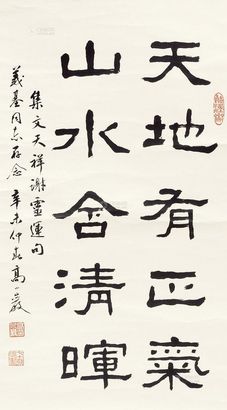 天地有正氣
山水含清暉
集文天祥謝靈運句
義基同志存念 辛未仲春高一嚴